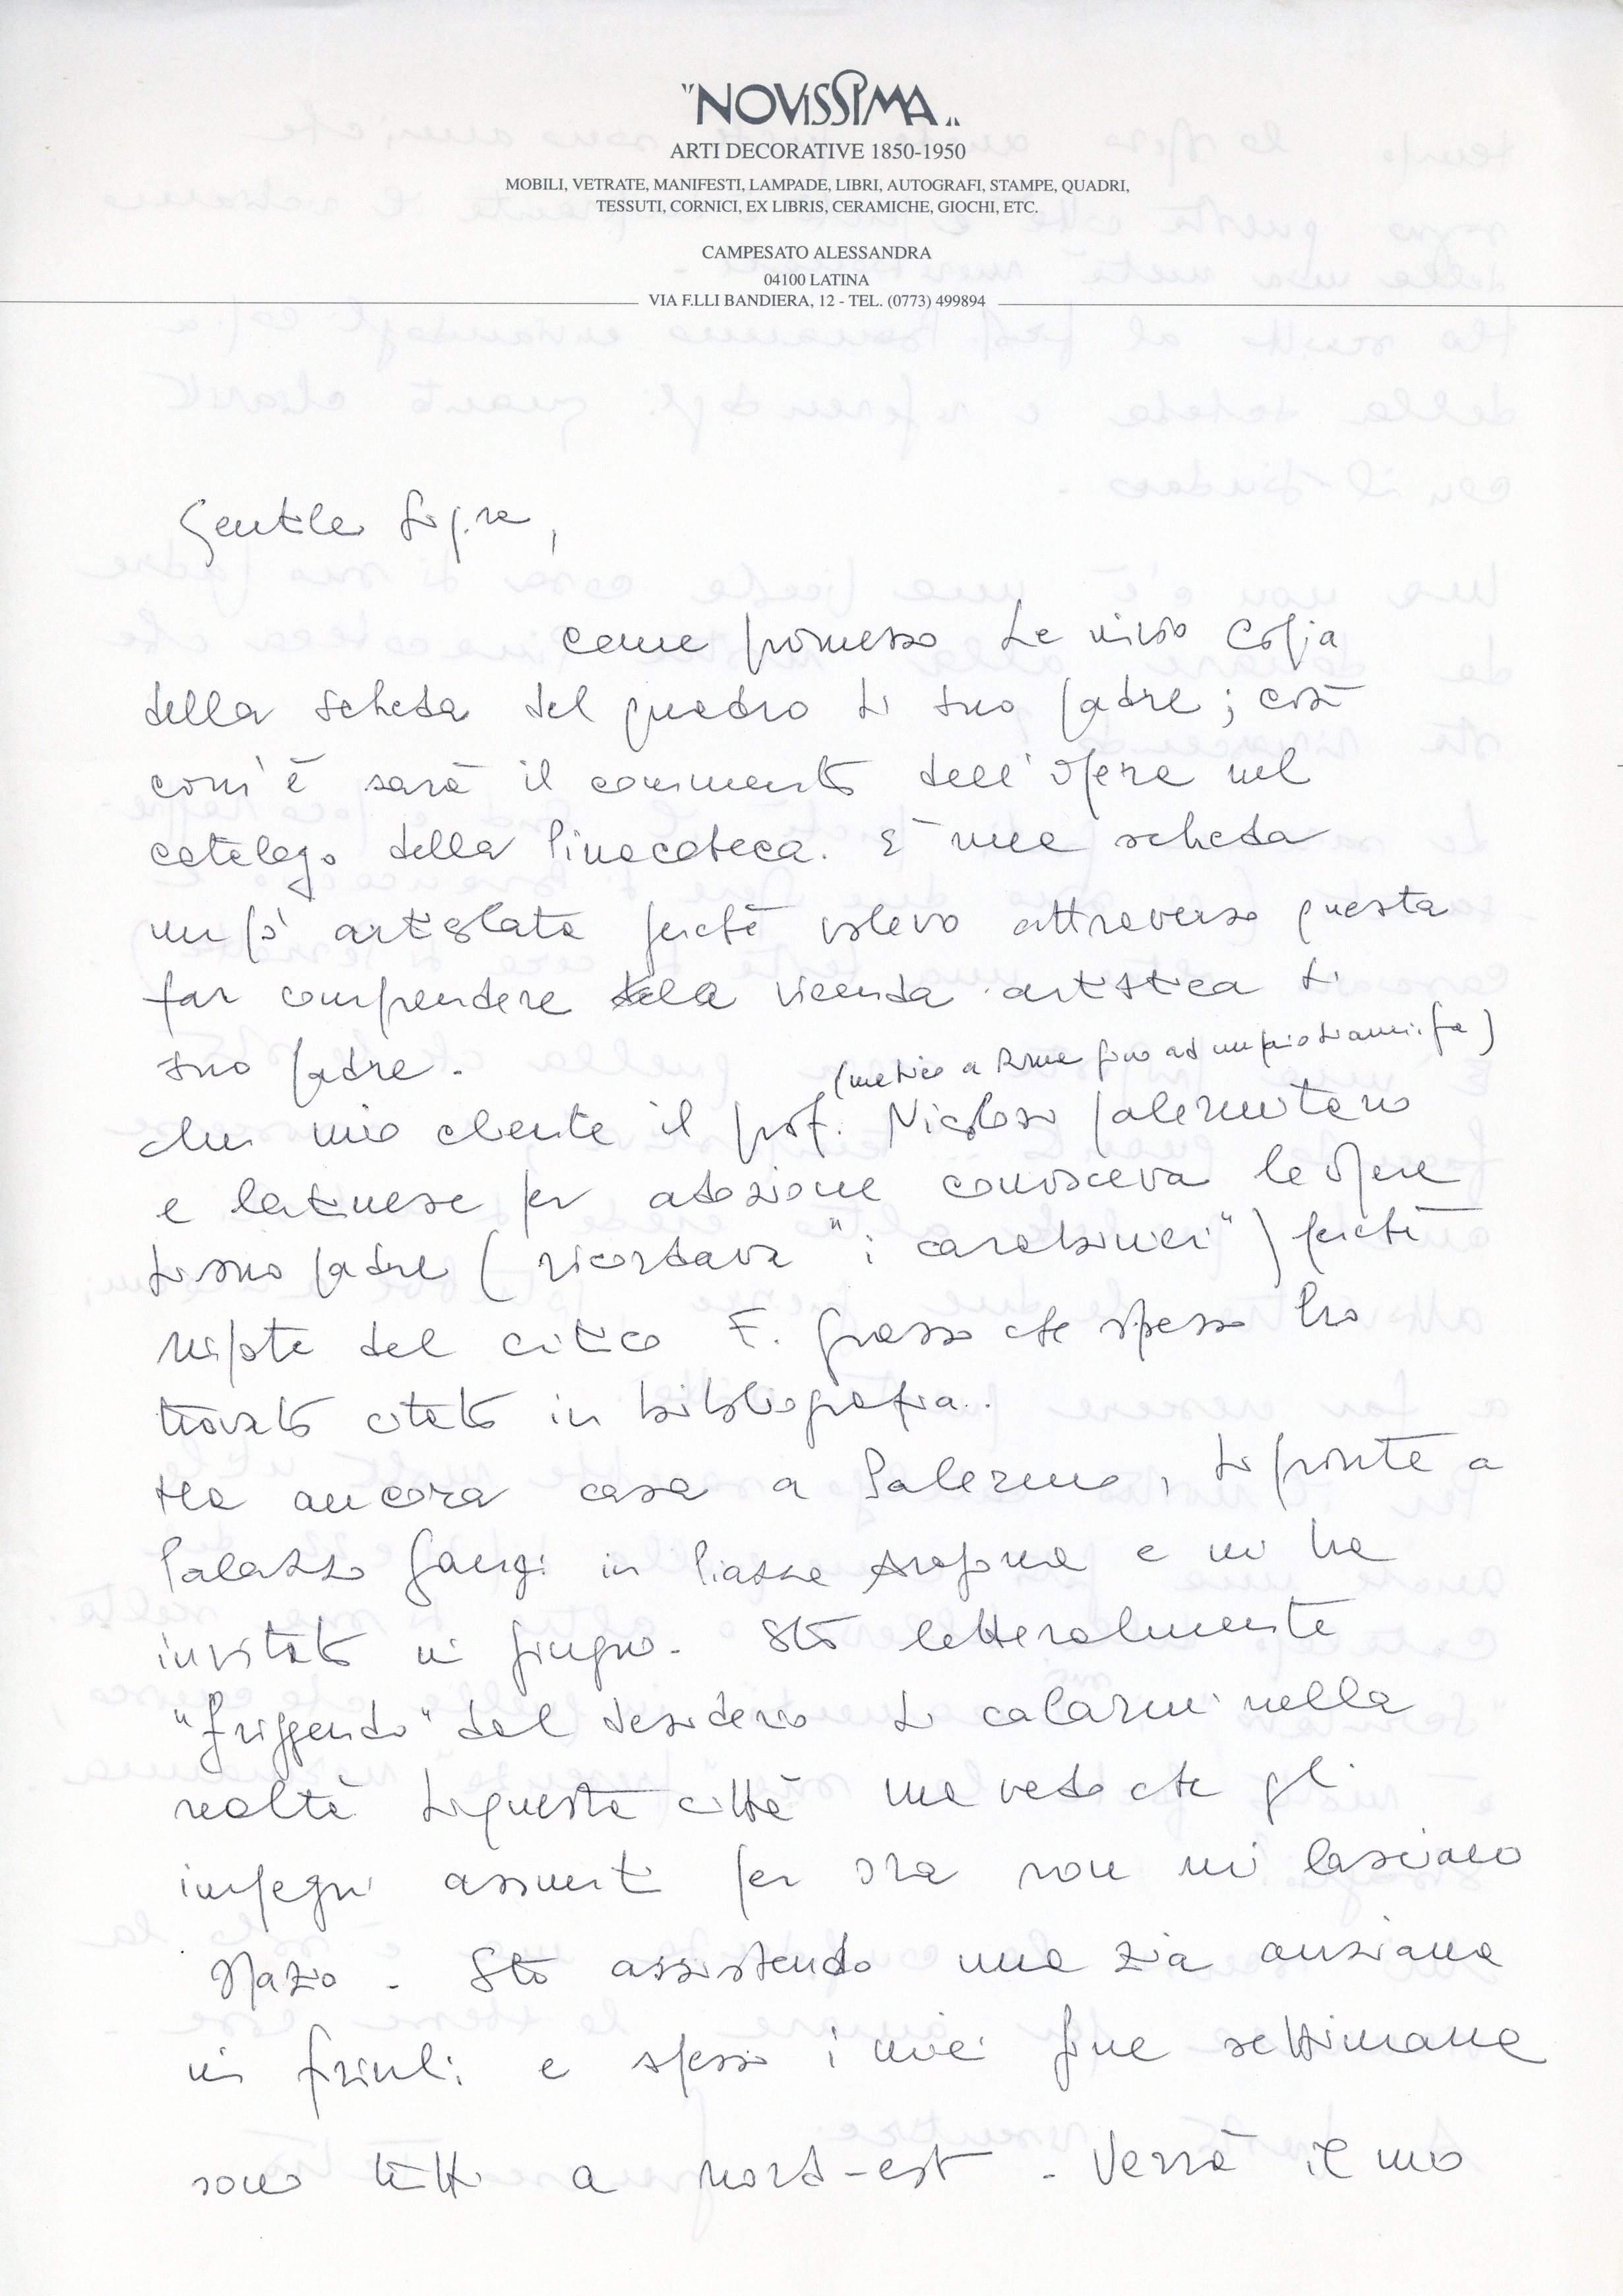 "NOVISSIMA"
ARTI DECORATIVE 1850-1950
MOBILI, VETRATE, MANIFESTI, LAMPADE, LIBRI, AUTOGRAFI, STAMPE, QUADRI,
TESSUTI, CORNICI, EX LIBRIS, CERAMICHE, GIOCHI, ETC.
CAMPESATO ALESSANDRA
04100 LATINA
VIA F.LLI BANDIERA, 12 - TEL. (0773) 499894
Gentile Sig.ra,
come promesso Le invio copia
della scheda del quadro di suo padre; così
com'è sarà il commento dell'opera nel
catalogo della Pinacoteca. È una scheda
un pò articolata perchè volevo attraverso questa
far comprendere la vicenda artistica di
suo padre.
(medico a Roma fino ad un paio di anni fa)
Un mio cliente il prof. Nicolosi palermitano
e latinese per adozione conosceva le opere
di suo padre (ricordava "i carabinieri") perchè
nipote del critico F. Grasso che spesso ho
trovato citato in bibliografia..
Ha ancora casa a Palermo, di fronte a
Palazzo Gangi in Piazza Aragona e mi ha
invitato in giugno. Stò letteralmente
"friggendo" dal desiderio di calarmi nella
realtà di questa città ma vedo che gli
impegni assunti per ora non mi lasciano
spazio. Stò assistendo una zia anziana
in Friuli e spesso i miei fine settimana
sono tutti a nord-est. Verrà il mio